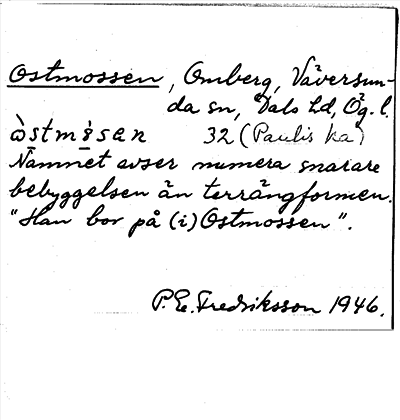 Ostmossen, Omberg, Väversun-
da sn, Dals hd, Ög. l.
òstm<u>ṡ</u>san 32 (Paulis ka)
Namnet avser numera snarare
bebyggelsen än terrängformen.
"Han bor på (i) Ostmossen".
P. E. Fredriksson 1946.